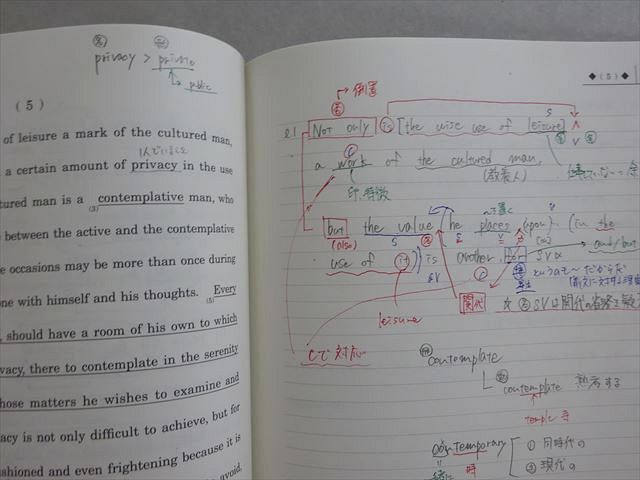 privacy > private
public
(5)
of leisure a mark of the cultured man,
1人でいること
a certain amount of privacy in the use
tured man is a contemplative man, who
(3)
e between the active and the contemplative
e occasions may be more than once during
one with himself and his thoughts. Every
(5)
should have a room of his own to which
vacy, there to contemplate in the serenity
hose matters he wishes to examine and
acy is not only difficult to achieve, but for
ashioned and even frightening because it is
avoid.
◆(5)◆
倒置
S
Not only is [the wise use of leisure] ∧
V
a work of the cultured man,
(教養人)
印, 特徴
but the value he places (upon) (in the
(also) S S V
use of it) is another, for SV
and/but
SV
というのも〜だからだ
関代 ☆ SVは関代の省略を
leisure
Cで対応
contemplate
contemplate 熟考する
temple 寺
contemporary ① 同時代の
時 ② 現代の